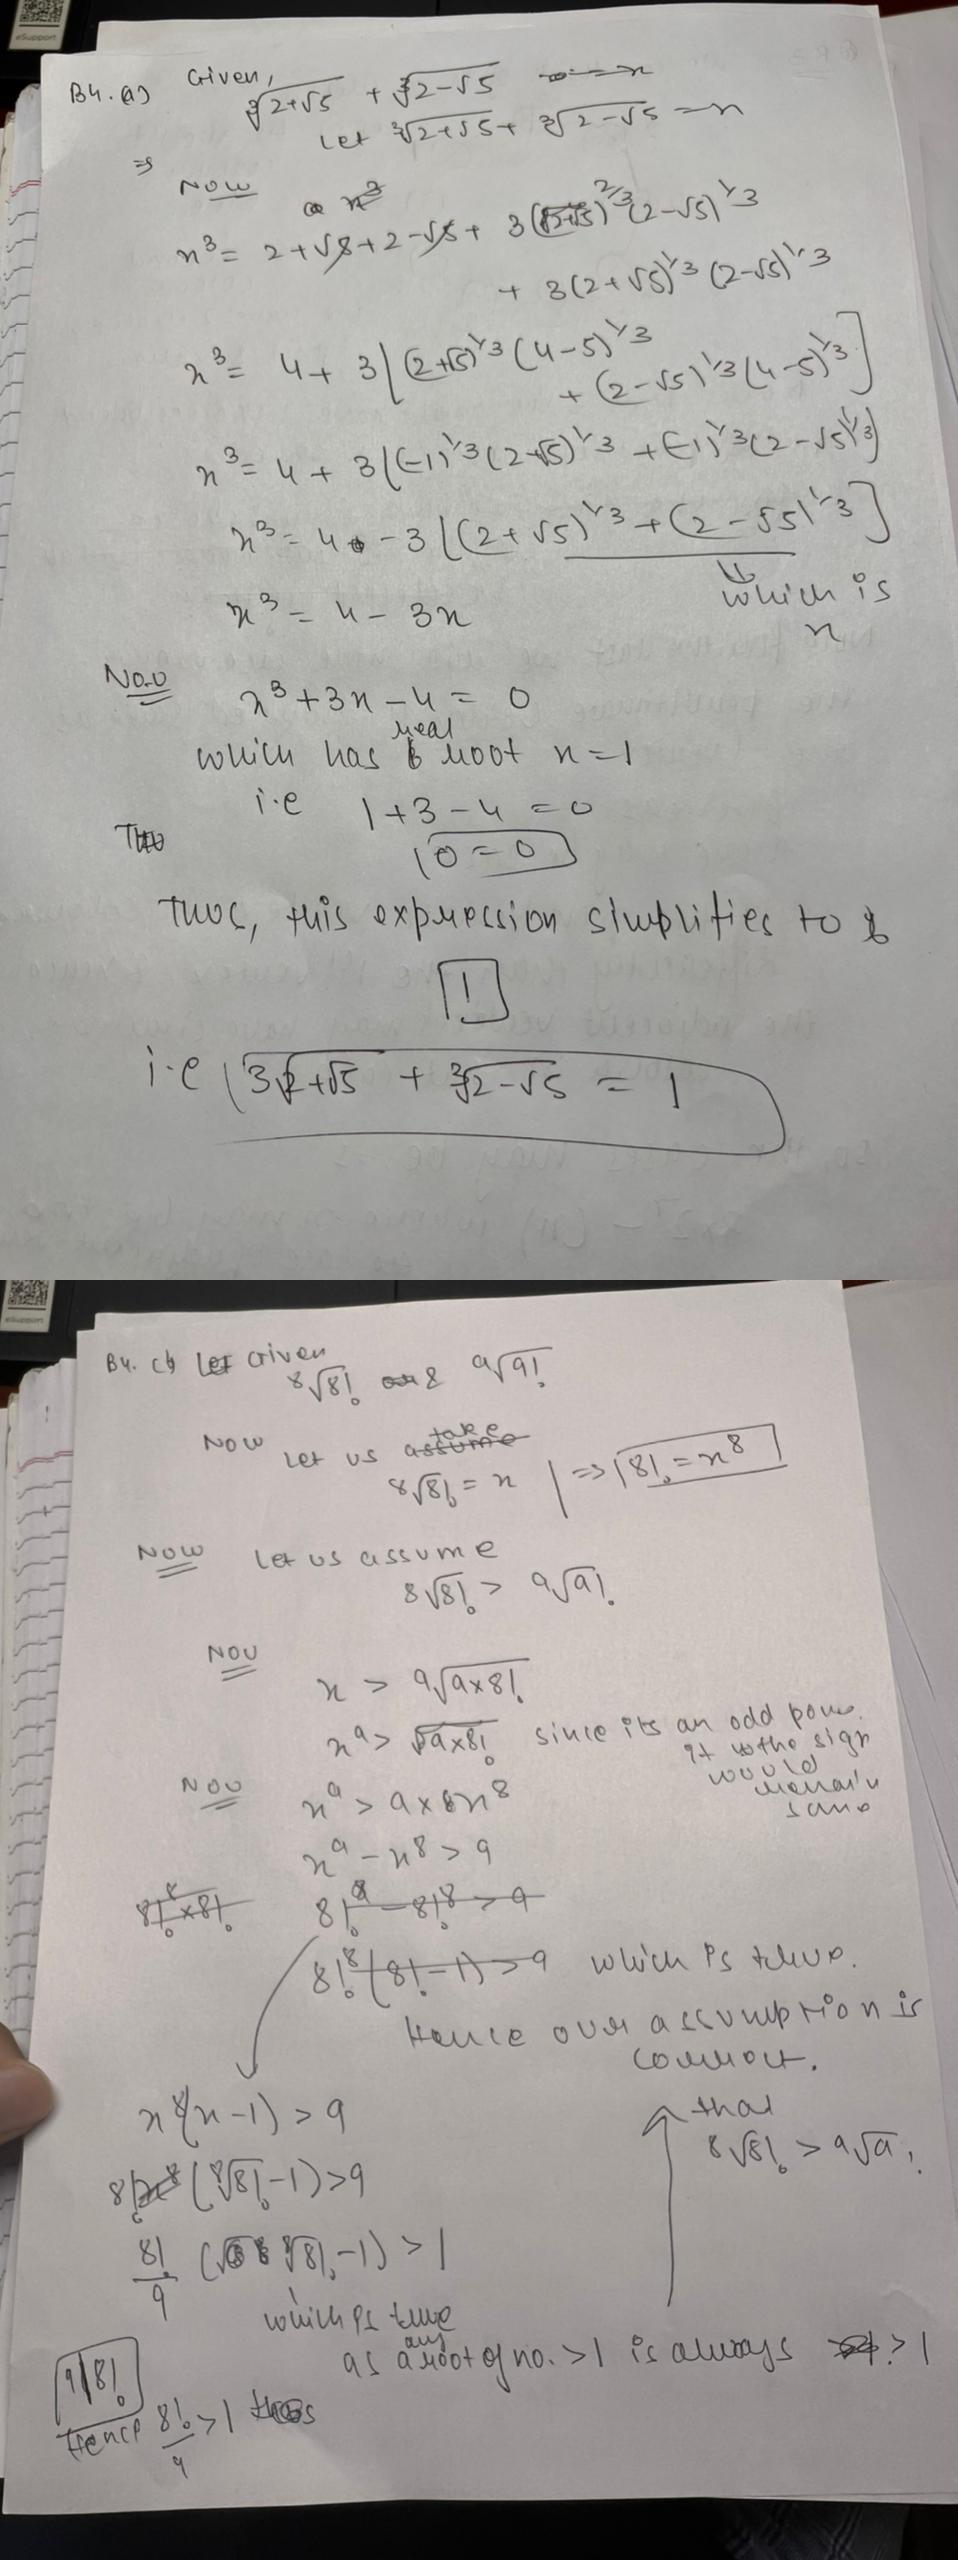 eSupport
B4. (a) Given,
∛2+√5 + ∛2-√5
Let ∛2+√5 + ∛2-√5 = x
⇒
Now
x³ = 2+√5+2-√5+ 3(2+√5)^2/3 (2-√5)^1/3
+ 3(2+√5)^1/3 (2-√5)^1/3
x³ = 4+ 3[(2+√5)^1/3 (4-5)^1/3
+ (2-√5)^1/3 (4-5)^1/3]
x³ = 4 + 3[(-1)^1/3 (2+√5)^1/3 + (-1)^1/3 (2-√5)^1/3]
x³ = 4 - 3[(2+√5)^1/3 + (2-√5)^1/3]
which is
x
x³ = 4 - 3x
Now x³ + 3x - 4 = 0
real
which has root x=1
i.e 1+3-4 = 0
0 = 0
Thus, this expression simplifies to
1
i.e 3√2+√5 + ∛2-√5 = 1
eSupport
Given
8√8! & 9√9!
Now Let us take
8√8! = x | ⇒ 8! = x⁸
Now Let us assume
8√8! > 9√9!
Now
x > 9√9×8!
x⁹ > 9×8! since its an odd power.
the sign
would
remain
same
Now x⁹ > 9×x⁸
x⁹ - x⁸ > 9
8!⁹ - 8!⁸ > 9
8!⁸(8!-1) > 9 which is true.
Hence our assumption is
correct.
that
8√8! > 9√9!
x⁸(x-1) > 9
8! (8√8!-1) > 9
8!/9 (8√8!-1) > 1
which is true
as any root of no. >1 is always >1
9|8!
Hence 8!/9 > 1